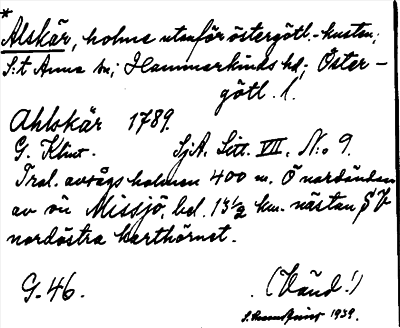 *
Alskär, holme utanför östergötl.-kusten;
S:t Anna sn; Hammarkinds hd; Öster-
götl. l.
Ahlskär 1789.
G. Klint. SjA. Litt. VII. N:o 9.
Trol. avsågs holmen 400 m. Ö nordändan
av ön Missjö, bel. 13 1/2 km. nästan S V
nordöstra karthörnet.
G. 46. (Vänd!)
1939.